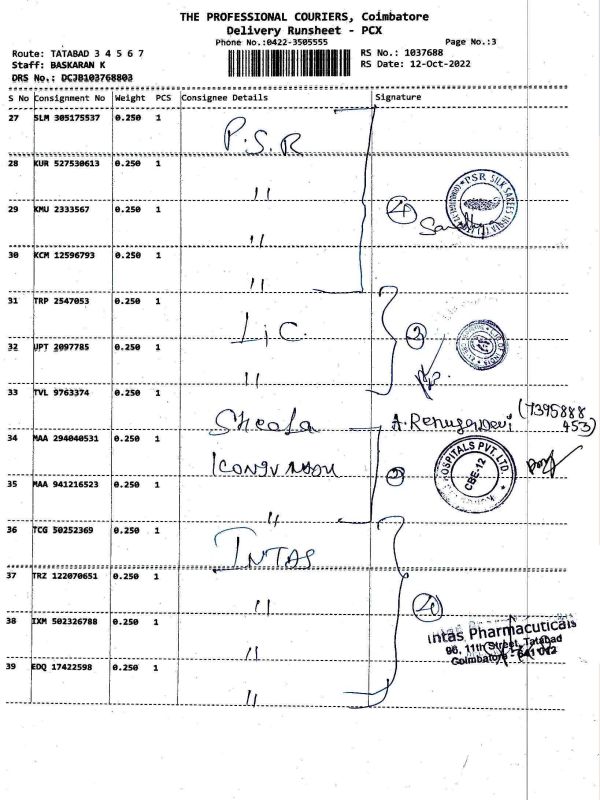 THE PROFESSIONAL COURIERS, Coimbatore
Delivery Runsheet - PCX
Phone No.:0422-3505555
Page No.:3
Route: TATABAD 3 4 5 6 7
RS No.: 1037688
Staff: BASKARAN K
RS Date: 12-Oct-2022
DRS No.: DCJB103768803
S No Consignment No Weight PCS Consignee Details Signature
27 SLM 305175537 0.250 1 P.S.R
28 KUR 527530613 0.250 1 "
PSR SILK SAREES INDIA
29 KMU 2333567 0.250 1 "
4
30 KCM 12596793 0.250 1 "
31 TRP 2547053 0.250 1 LIC
2
32 UPT 2097785 0.250 1 "
33 TVL 9763374 0.250 1 Sheela A. Renugadevi (7395888
453)
34 MAA 294040531 0.250 1 Kongunadu
HOSPITALS PVT. LTD.
CBE-12
35 MAA 941216523 0.250 1 "
2
36 TCG 50252369 0.250 1 INTAS
37 TRZ 122070651 0.250 1 "
4
38 IXM 502326788 0.250 1 "
Intas Pharmacuticals
96, 11th Street, Tatabad
Coimbatore - 641 012
39 EDQ 17422598 0.250 1 "